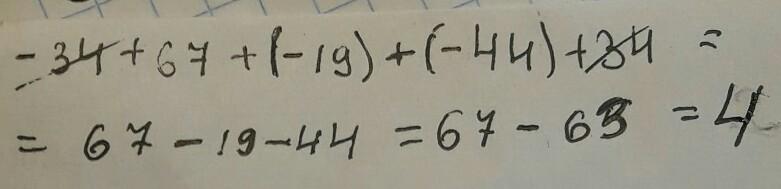 -34+67+(-19)+(-44)+34 =
= 67-19-44 = 67-63 = 4